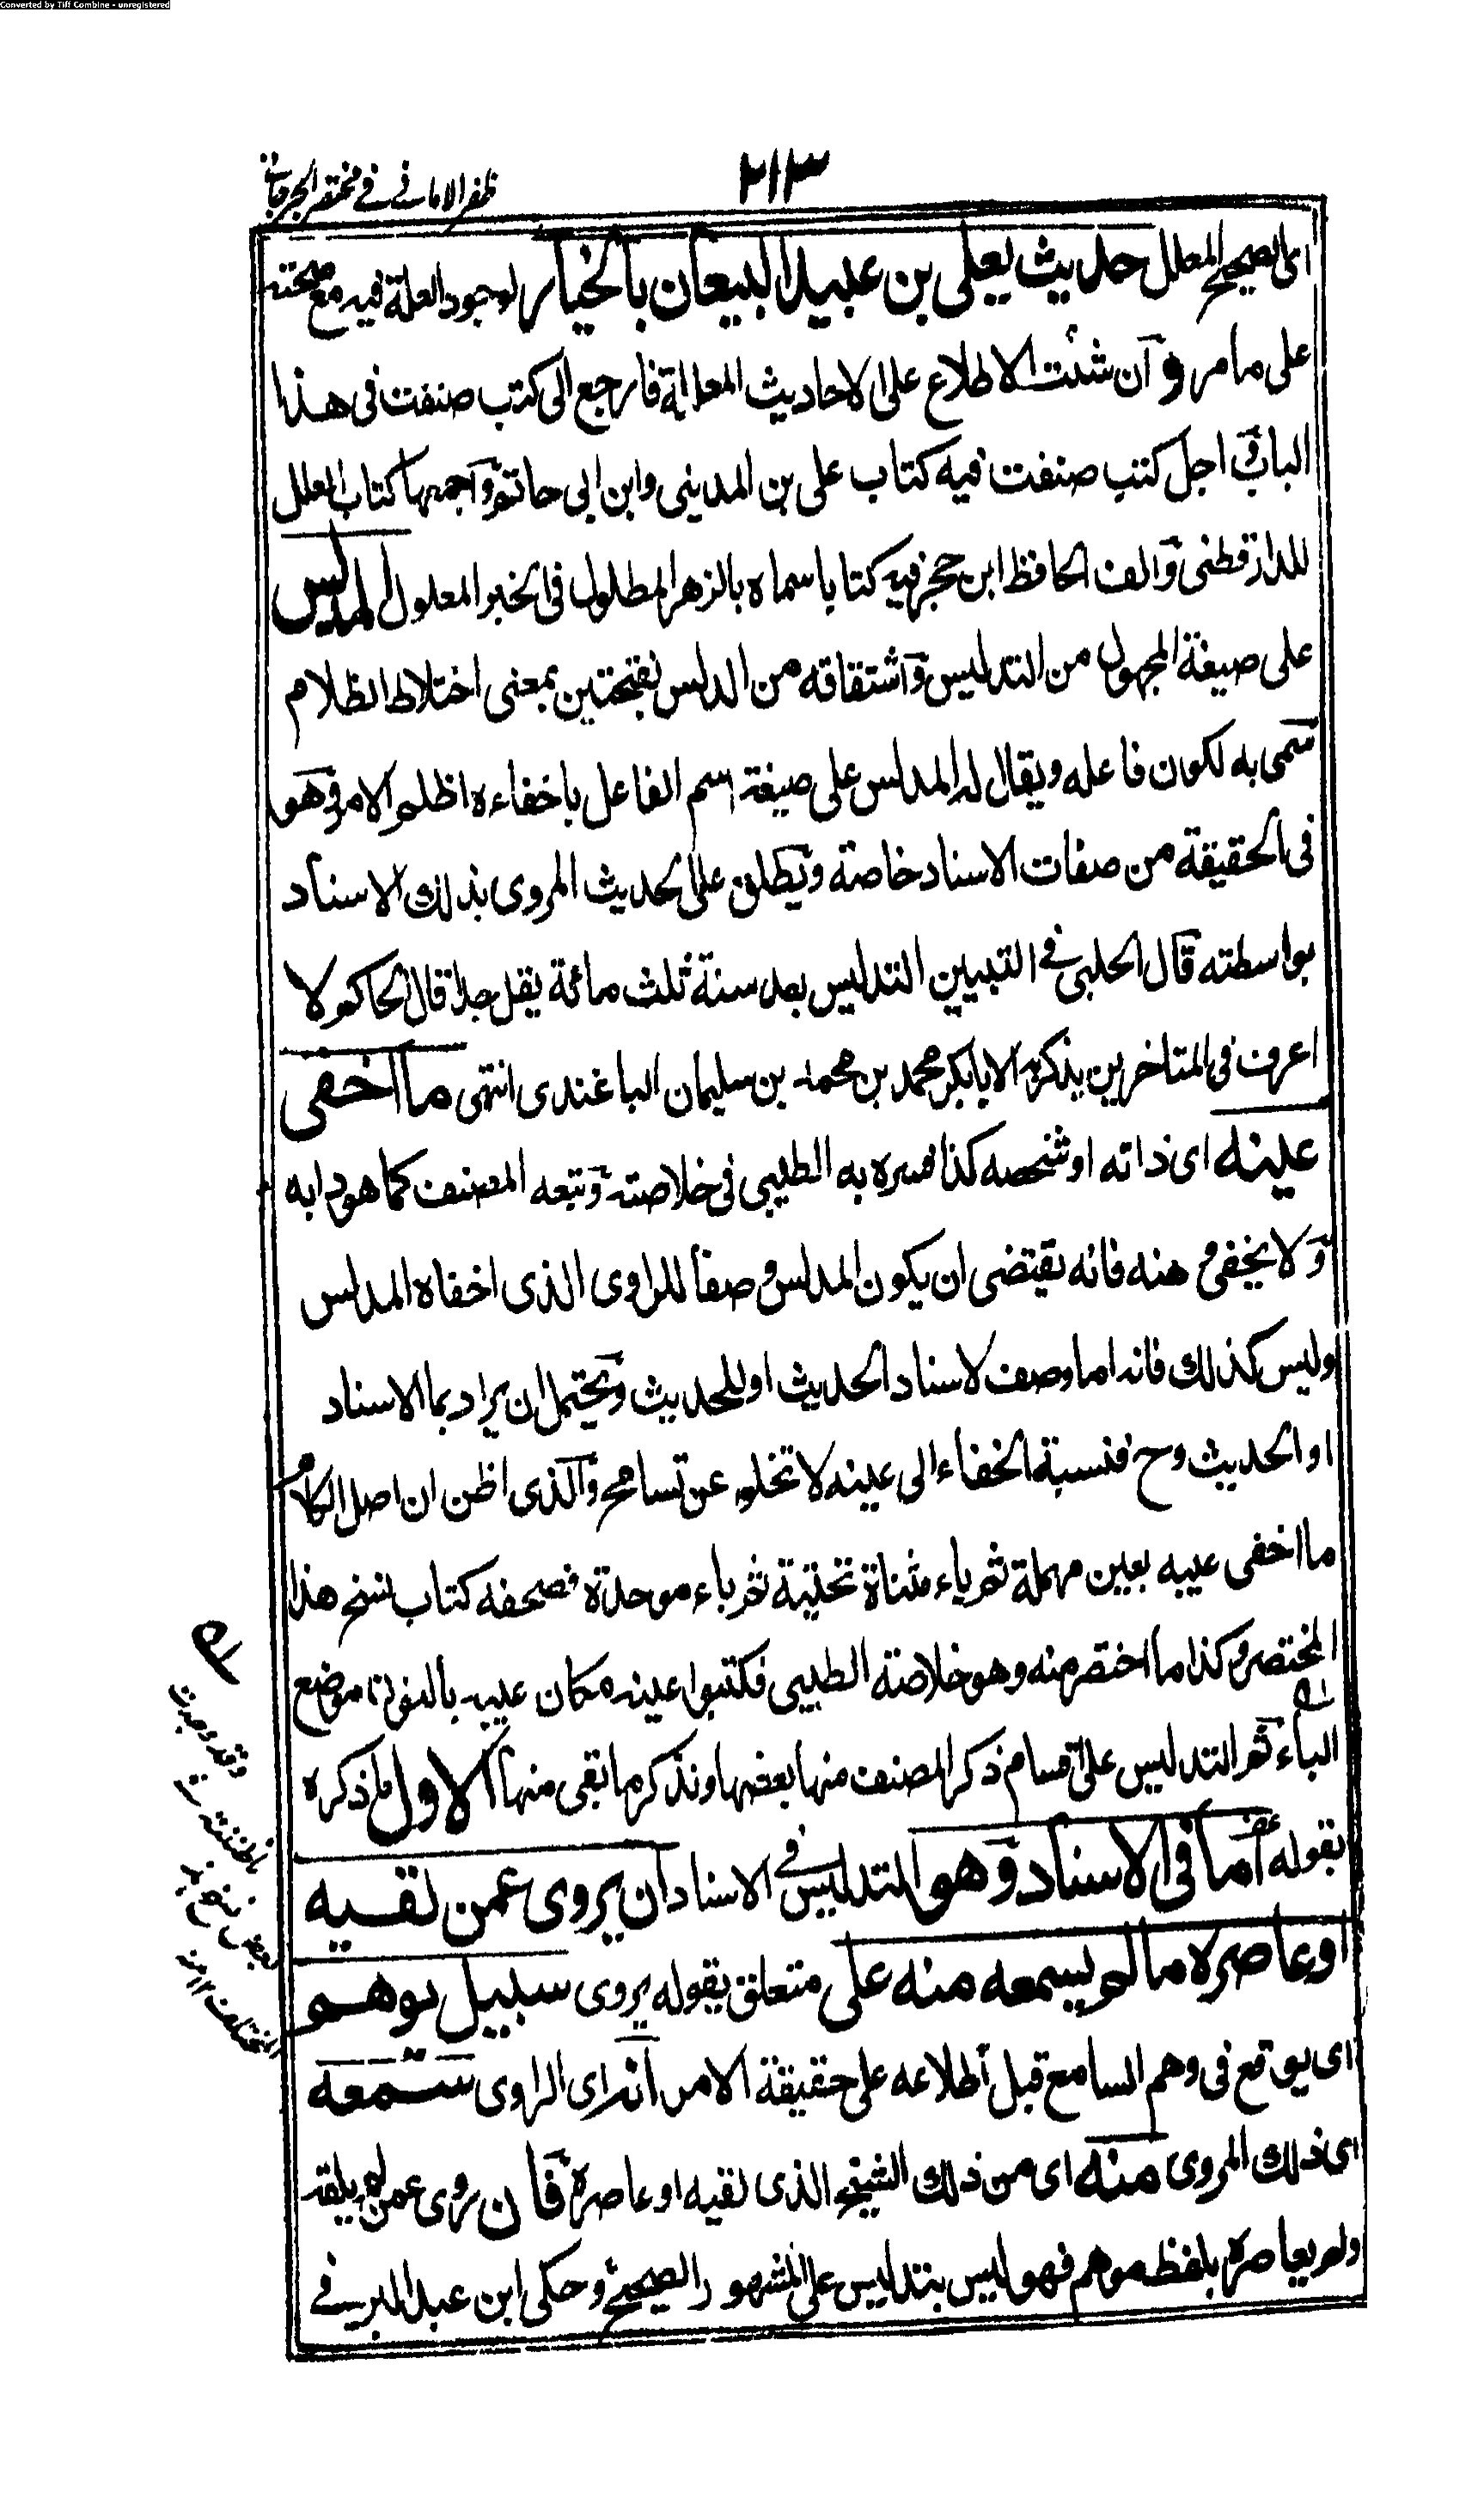 Converted by Tiff Combine - unregistered
٢١٣
ظفر الامانی فی مختصر الجرجانی
ای الصحیح المعلل حدیث یعلی بن عبید البیعان بالخیار لوجود العلة فیه مع صحته
علی ما مر وآن شئت الاطلاع علی الاحادیث المعللة فارجع الی کتب صنفت فی هذا
الباب وآجل کتب صنفت فیه کتاب علی بن المدینی وابن ابی حاتم وآجمعها کتاب العلل
للدارقطنی وآلف الحافظ ابن حجر فیه کتابا سماه بالزهر المطلول فی الخبر المعلول المدلس
علی صیغة المجهول من التدلیس وآشتقاقه من الدلس بفتحتین بمعنی اختلاط الظلام
سمی به لکون فاعله ویقال له المدلس علی صیغة اسم الفاعل باخفاءه اظلم الامر وهو
فی الحقیقة من صفات الاسناد خاصة ویطلق علی الحدیث المروی بذلك الاسناد
بواسطته قال الحلبی فی التبیین التدلیس بعد سنة ثلث مائة یقل جدا قال الحاکم لا
اعرف فی المتاخرین یذکر به الا ابابکر محمد بن محمد بن سلیمان الباغندی انتهی ما اخفی
عینه ای ذاته او شخصه کذا فسره به الطیبی فی خلاصته وتبعه المصنف کما هو دابه
ولا یخفی وهنه فانه یقتضی ان یکون المدلس وصفا للراوی الذی اخفاه المدلس
ولیس کذلك فانه اما وصف لاسناد الحدیث او للحدیث ویحتمل ان یراد بما الاسناد
او الحدیث وح فنسبة الخفاء الی عینه لا تخلو عن تسامح وآلذی اظن ان اصل الکلام
ما اخفی عیبه بعین مهملة ثم یاء مثناة تحتیة ثم باء موحدة فصحفه کتاب نسخ هذا
المختصر وکذا ما اختصر منه وهو خلاصة الطیبی فکتبوا عینه مکان عیبه بالنون موضع
الباء ثم التدلیس علی اقسام ذکر المصنف منها بعضها ونذکر ما بقی منها الاول ما ذکره
بقوله اما فی الاسناد وهو التدلیس فی الاسناد ان یروی عمن لقیه
او عاصره ما لم یسمعه منه علی متعلق بقوله یروی سبیل یوهم
ای یوقع فی وهم السامع قبل اطلاعه علی حقیقة الامر انه ای الراوی سمعه
ای ذلك المروی منه ای من ذلك الشیخ الذی لقیه او عاصره فان روی عمن لم یلقه
ولم یعاصره بلفظ موهم فهو لیس بتدلیس علی المشهور الصحیح وحکی ابن عبد البر فی